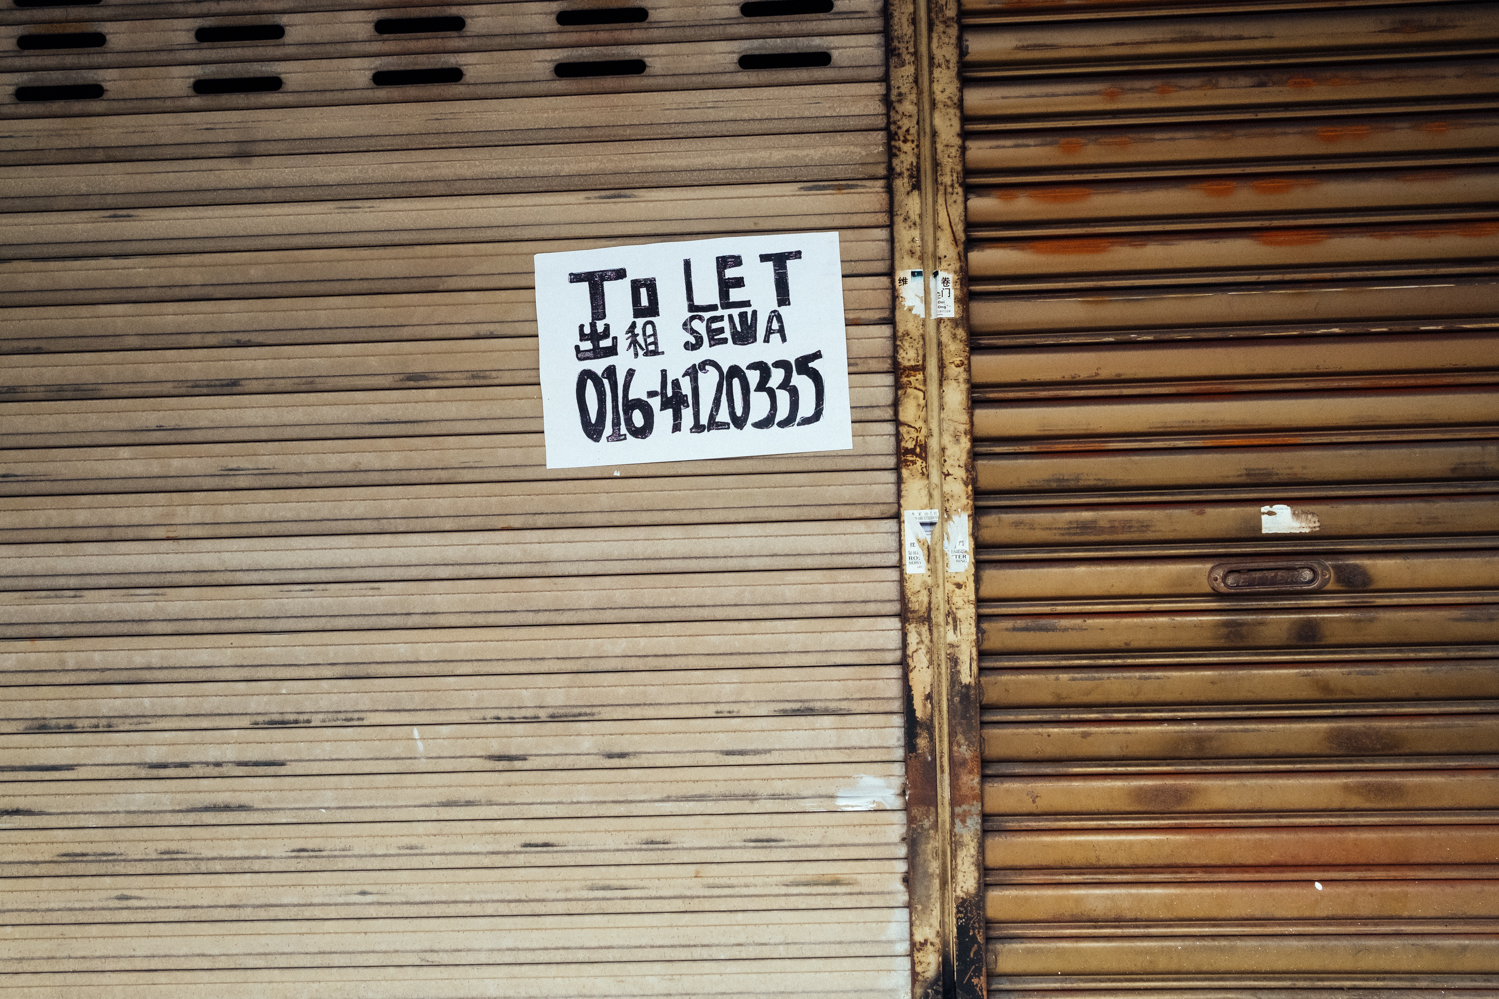 TO LET
出租 SEWA
016-4120335
维
卷
门
LETTERS